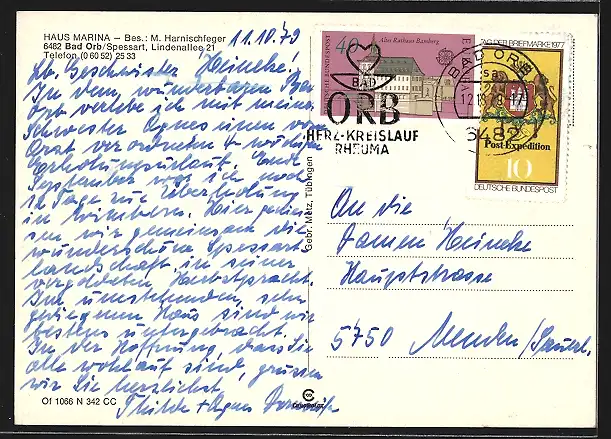 HAUS MARINA – Bes.: M. Harnischfeger
6482 Bad Orb/Spessart, Lindenallee 21
Telefon (0 60 52) 25 33
11.10.79
Lb. Geschwister Heineke!
In dem wunderbaren Bad
Orb verlebe ich mit meiner
Schwester Agnes einen vom
Arzt verordneten
Erholungsurlaub. Ende
September war ich noch
12 Tage zur Überholung
in Wimbern. Hier genies-
sen wir gemeinsam die
wunderschöne Spessart-
landschaft in seiner
vergoldeten Herbstpracht.
Im umstehenden, sehr
gediegenen Haus sind wir
bestens untergebracht.
In der Hoffnung, dass Sie
alle wohlauf sind, grüssen
wir Sie herzlichst,
Thilde + Agnes
Of 1066 N 342 CC
Gebr. Metz, Tübingen
40
Altes Rathaus Bamberg
DEUTSCHE BUNDESPOST
BAD
ORB
HERZ-KREISLAUF
RHEUMA
BAD ORB
6482
TAG DER BRIEFMARKE 1977
Post-Expedition
10
DEUTSCHE BUNDESPOST
An die
Damen Heineke
Hauptstrasse
5750 Menden/Sauerl.